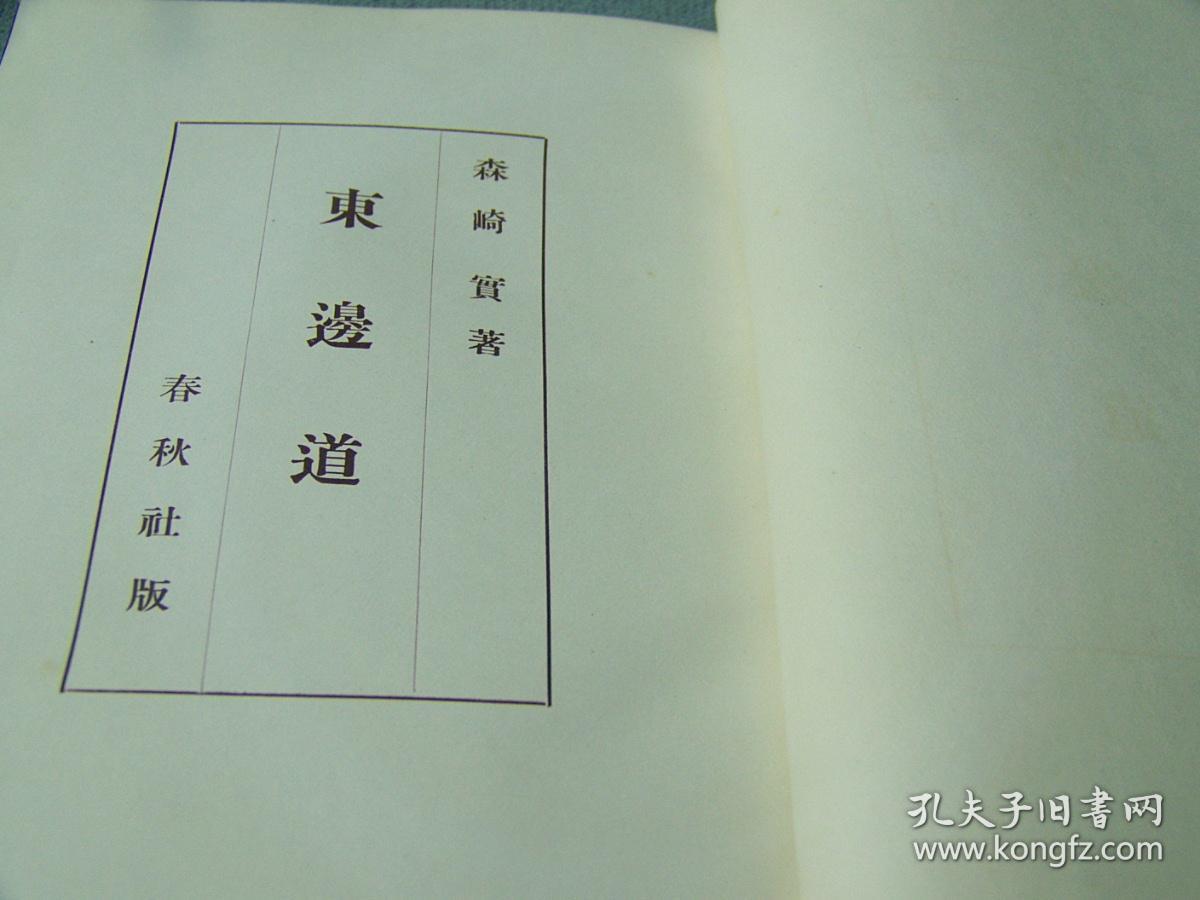 森崎實著
東邊道
春秋社版
孔夫子旧书网
www.kongfz.com